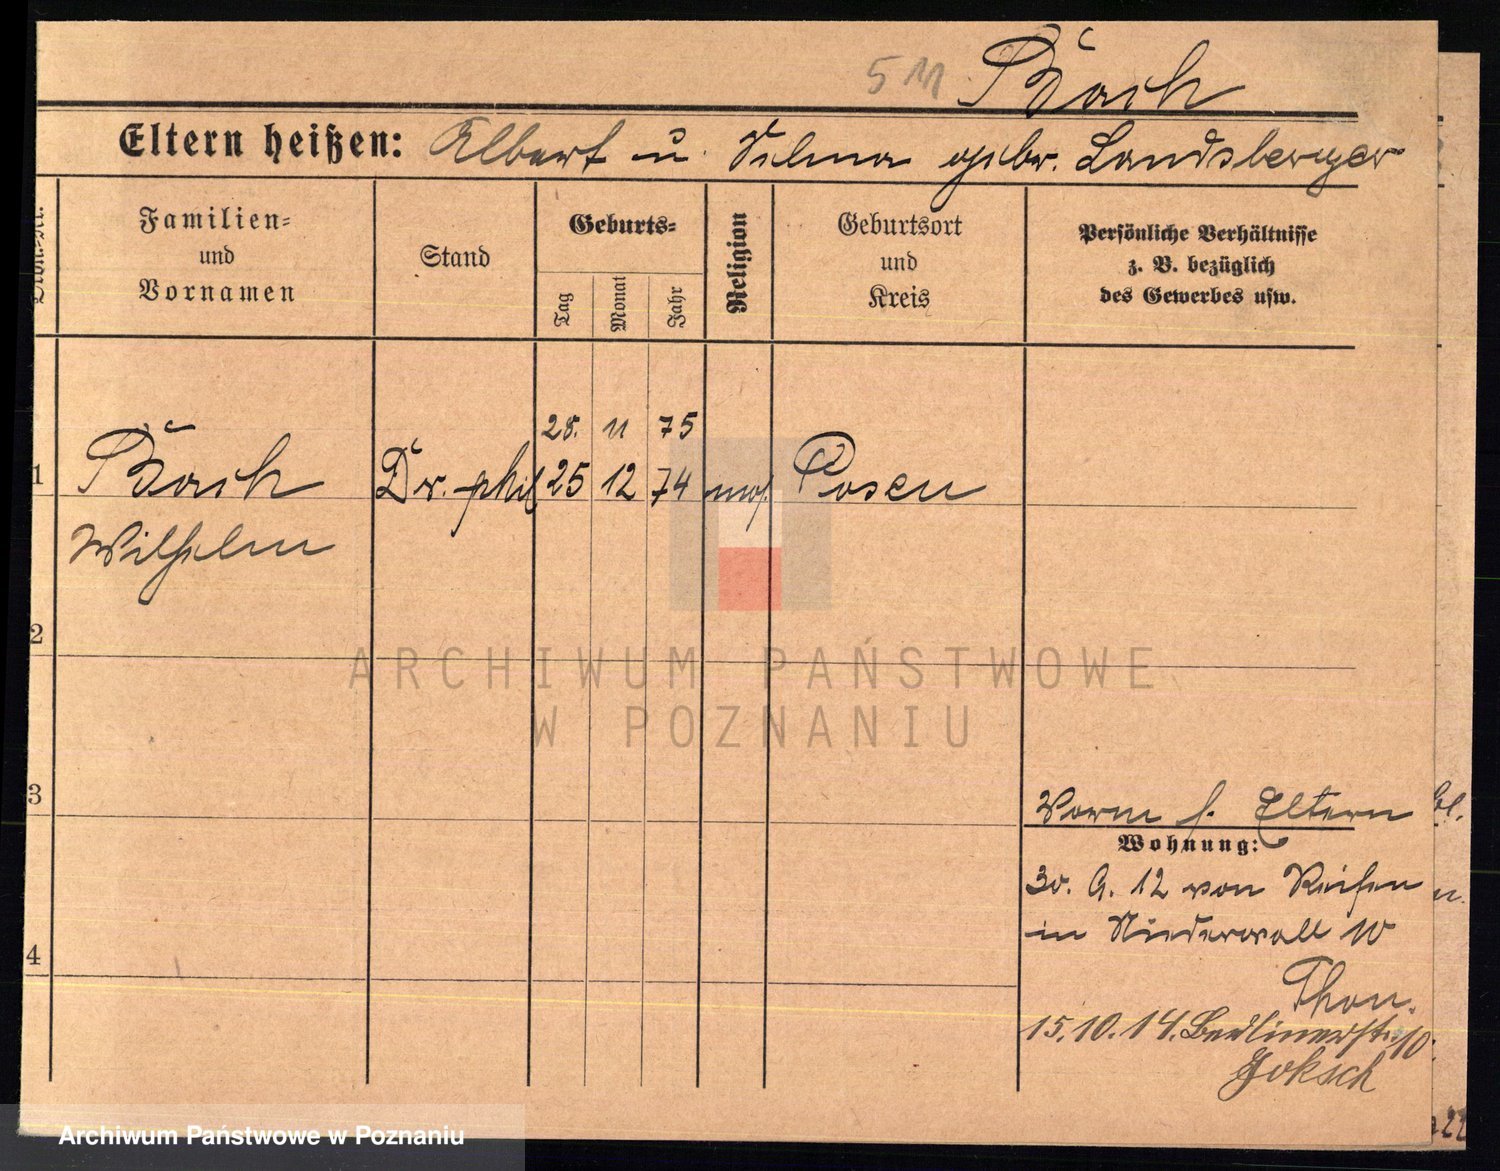 511 Bach
Eltern heißen: Albert u. Selma gebr. Landsberger
Familien-
und
Vornamen
Stand
Geburts-
Tag
Monat
Jahr
Religion
Geburtsort
und
Kreis
Persönliche Verhältnisse
z. B. bezüglich
des Gewerbes usw.
28. 11 75
1 Bach Dr. phil 25 12 74 mos. Posen
Wilhelm
2
3
4
Vorm s. Eltern
Wohnung:
30. 9. 12 von Reisen
in Niederwall 10
Thon.
15.10.14. Berlinerstr. 10.
Joksch
ARCHIWUM PAŃSTWOWE
W POZNANIU
Archiwum Państwowe w Poznaniu